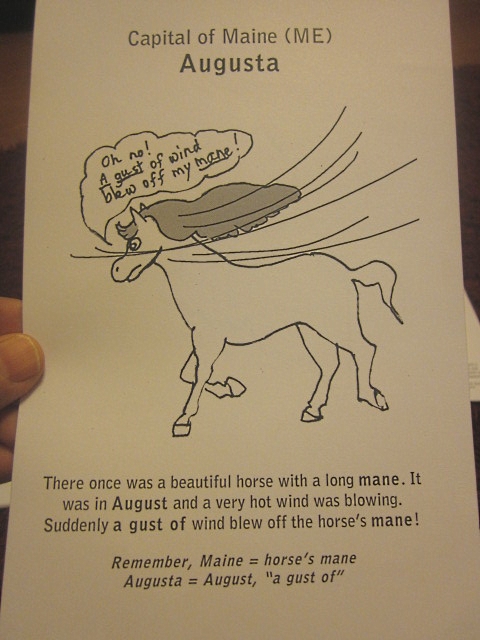 Capital of Maine (ME)
Augusta
Oh no!
A gust of wind
blew off my mane!
There once was a beautiful horse with a long mane. It
was in August and a very hot wind was blowing.
Suddenly a gust of wind blew off the horse's mane!
Remember, Maine = horse's mane
Augusta = August, "a gust of"